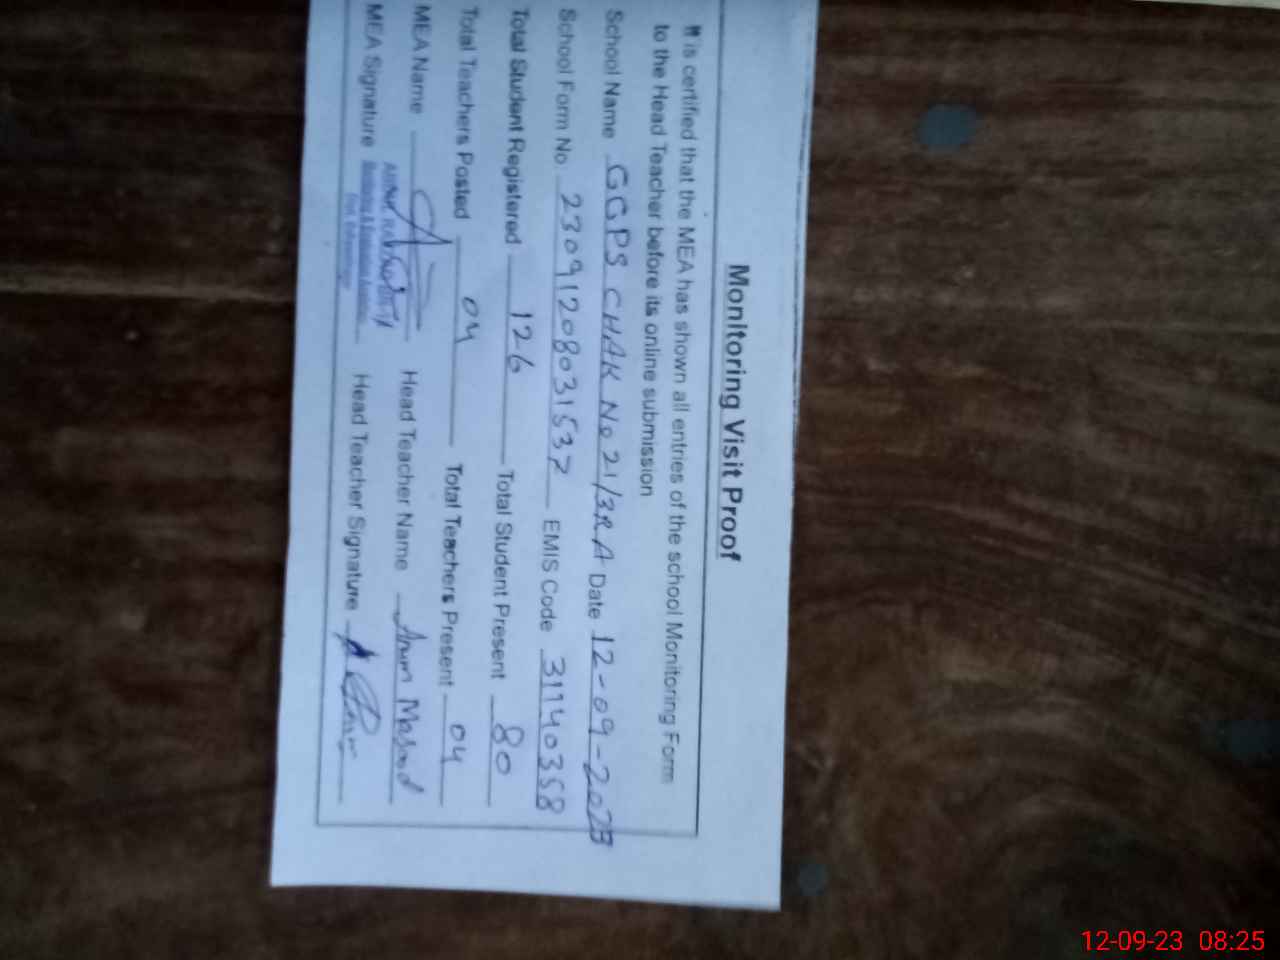 Monitoring Visit Proof
It is certified that the MEA has shown all entries of the school Monitoring Form
to the Head Teacher before its online submission
School Name GGPS CHAK No 21/3RA Date 12-09-2023
School Form No. 23091208031537 EMIS Code 31140358
Total Student Registered 126 Total Student Present 80
Total Teachers Posted 04 Total Teachers Present 04
MEA Name Head Teacher Name Anum Masood
MEA Signature Head Teacher Signature
12-09-23 08:25